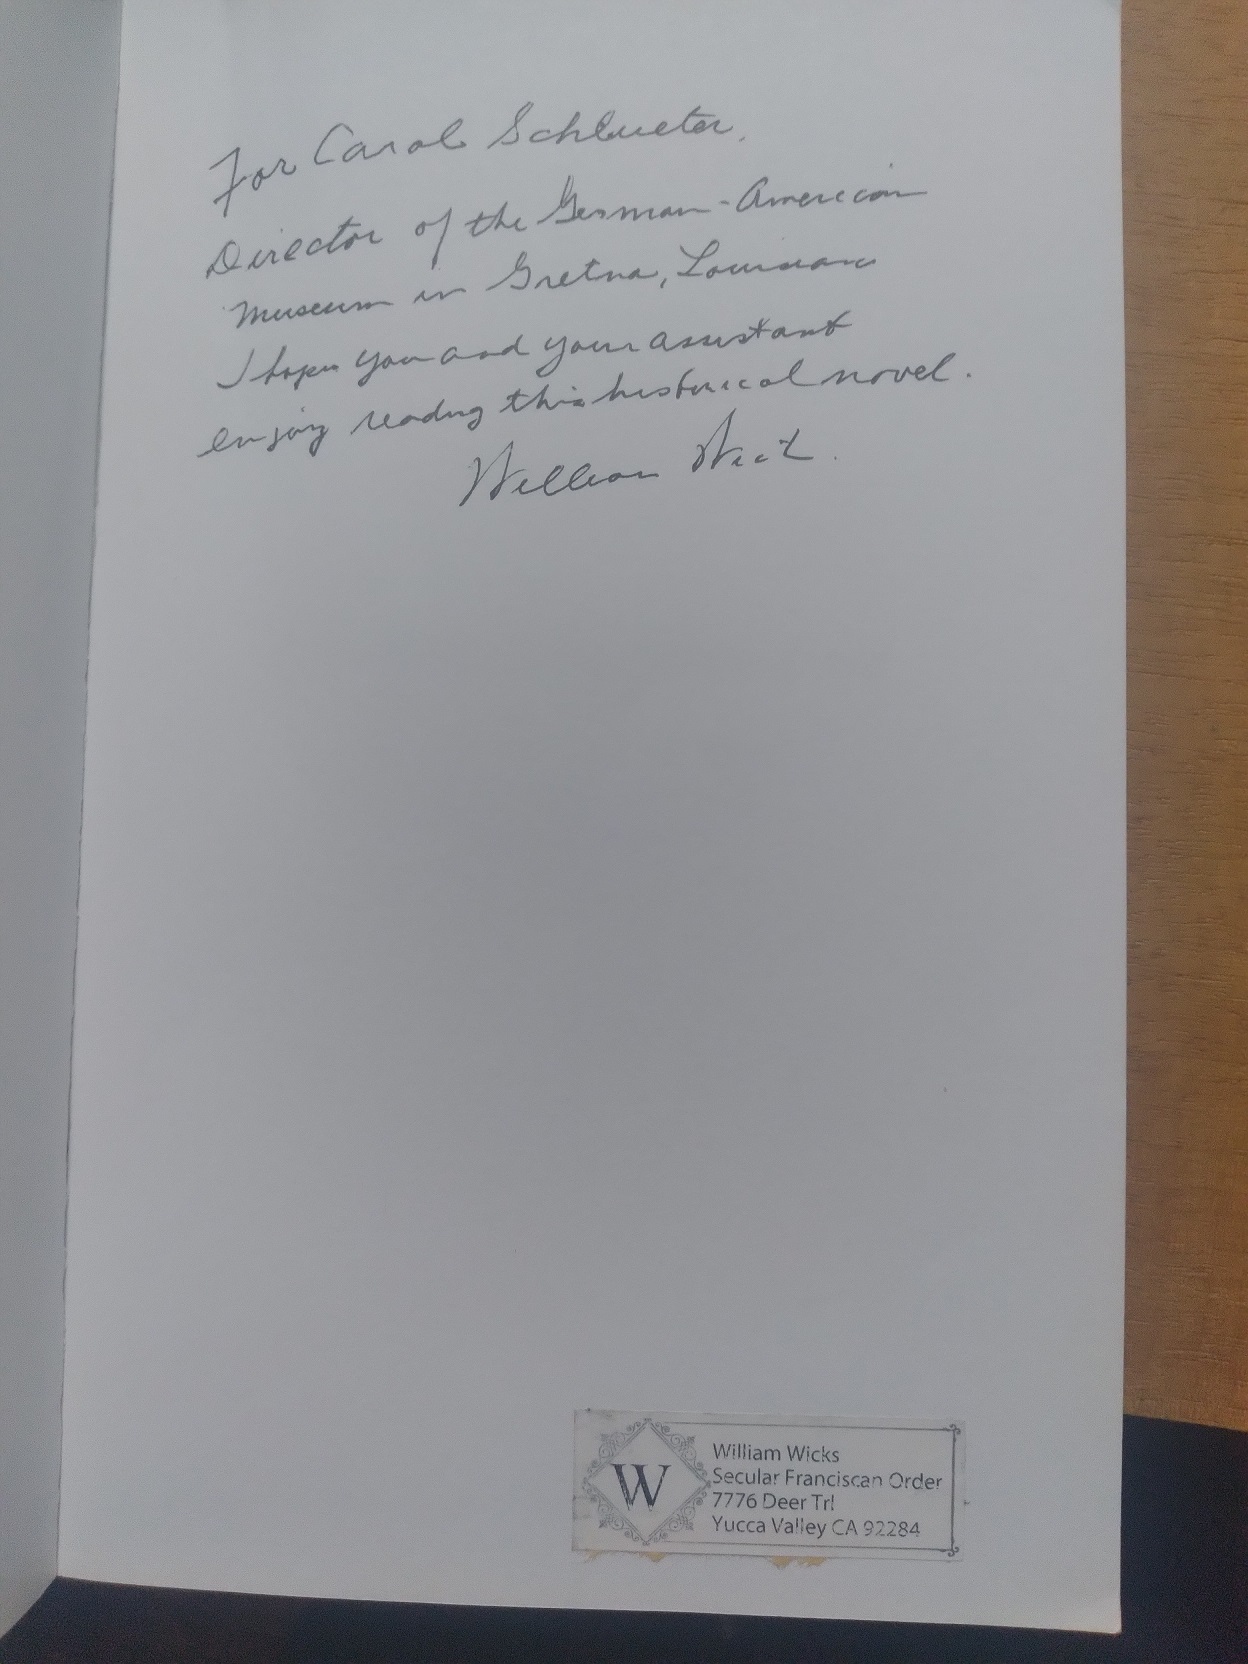 For Carol Schlueter,
Director of the German-American
Museum in Gretna, Louisiana
I hope you and your assistant
enjoy reading this historical novel.
William
W
William Wicks
Secular Franciscan Order
7776 Deer Trl
Yucca Valley CA 92284